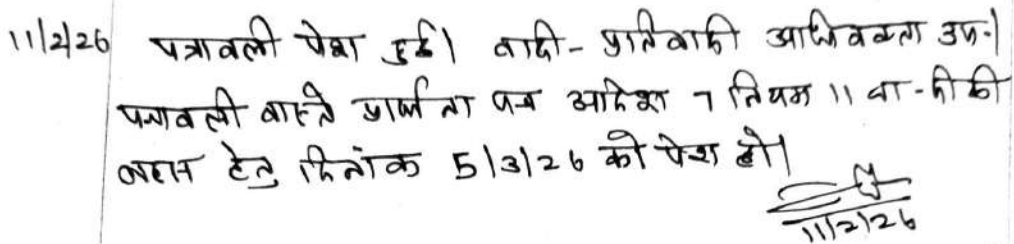 11/2/26 पत्रावली पेश हुई। वादी - प्रतिवादी अधिवक्ता उप.।
पत्रावली वास्ते प्रार्थना पत्र आदेश 7 नियम 11 जा.दी की
बहस हेतु दिनांक 5/3/26 को पेश हो।
11/2/26